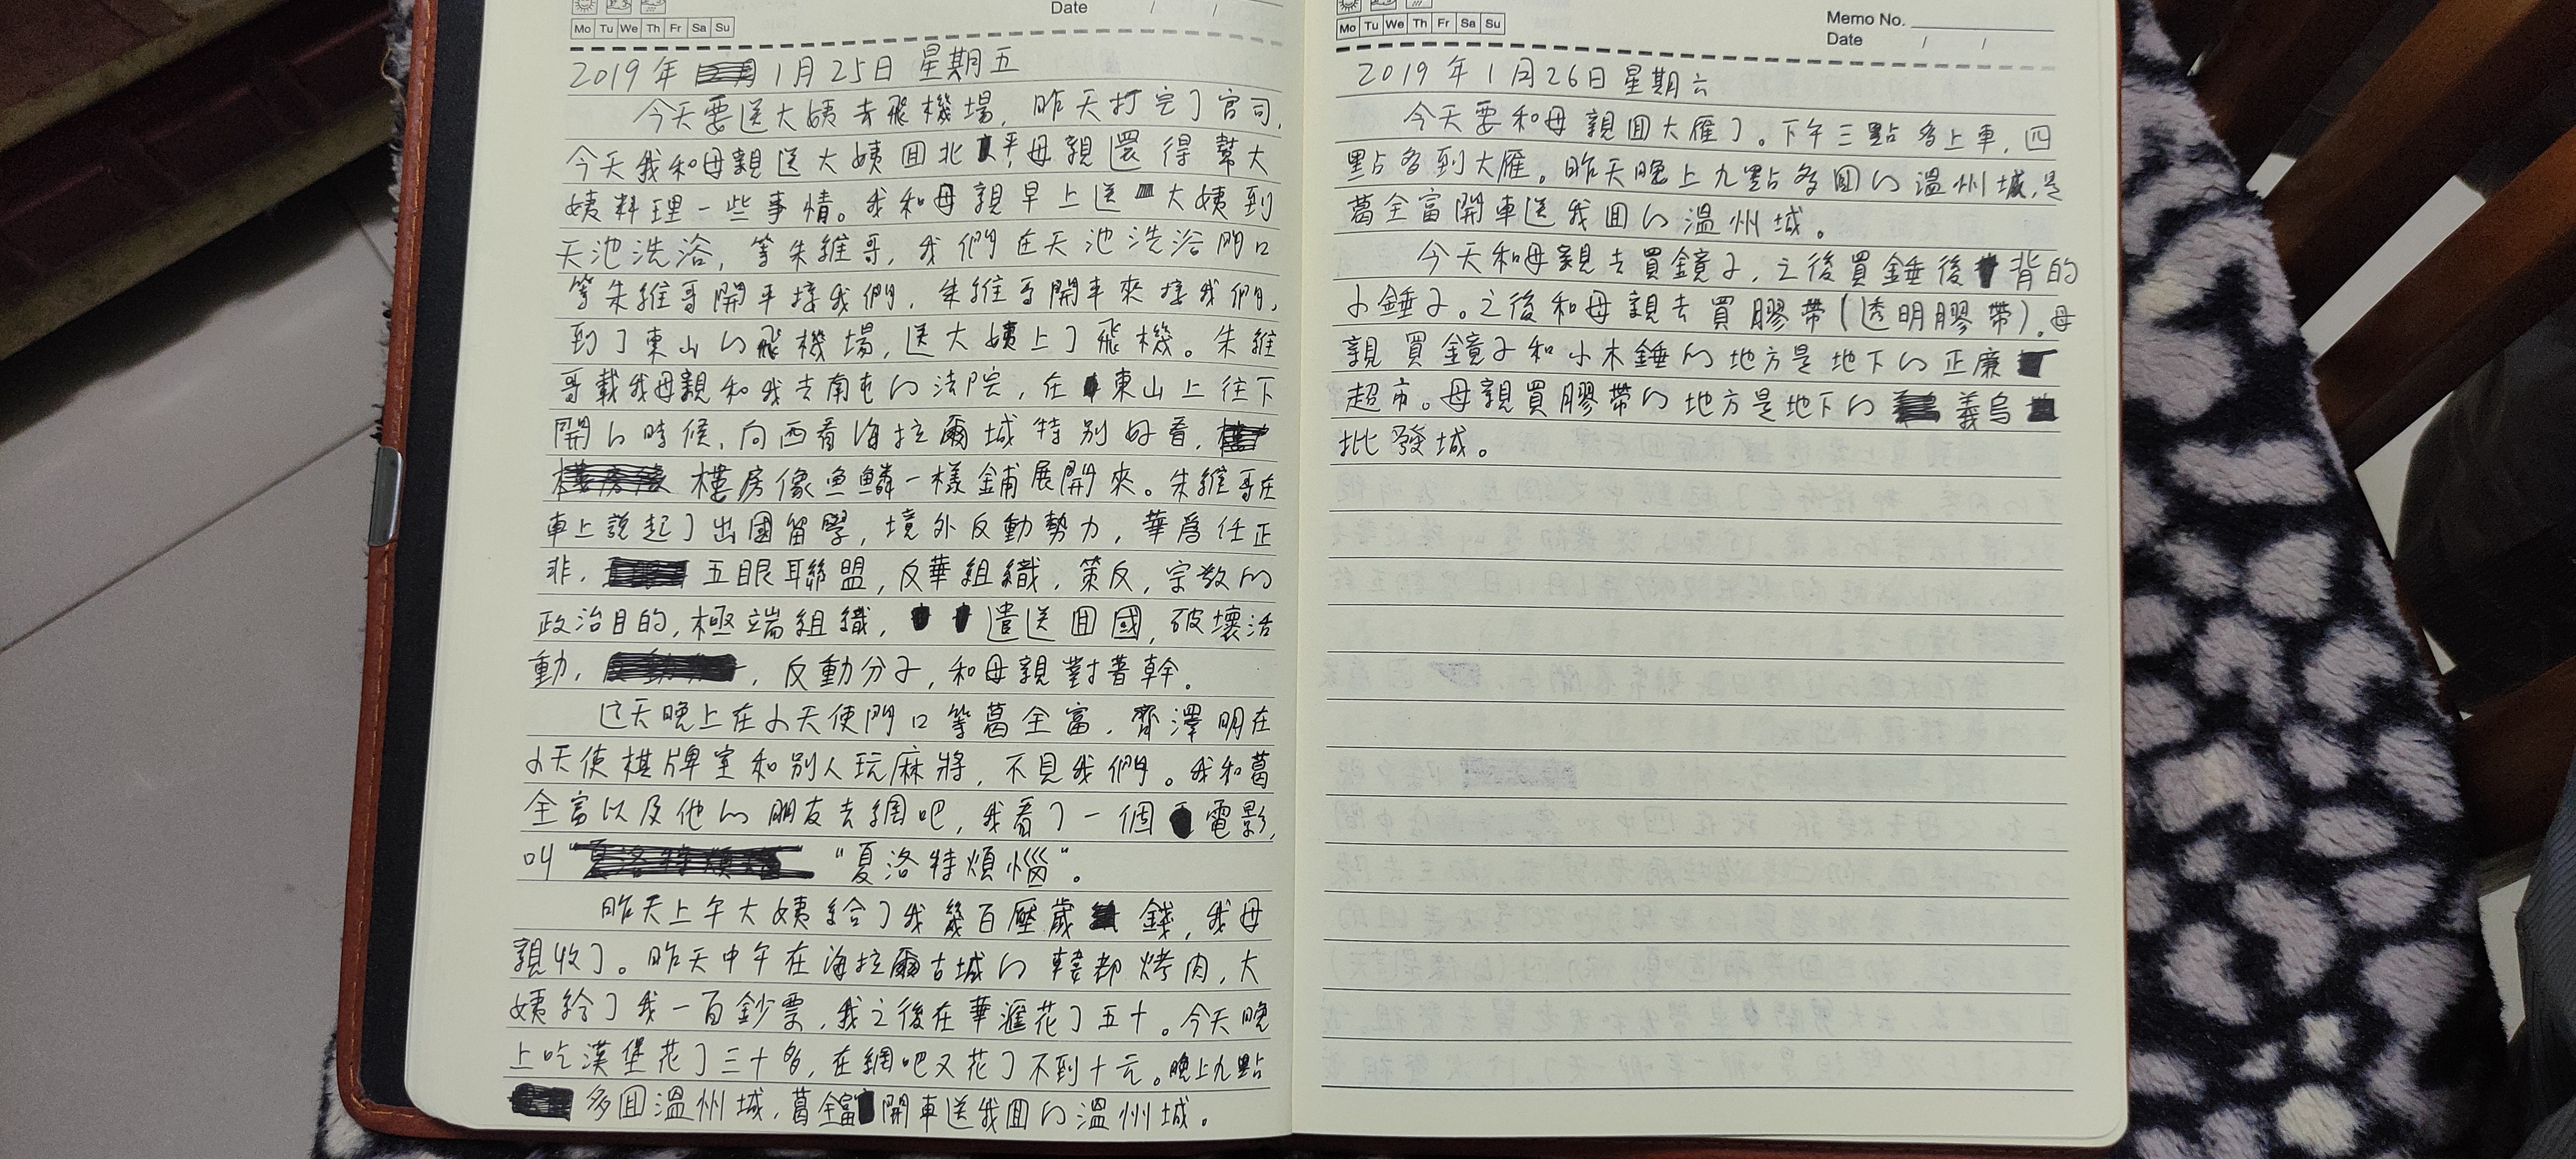 Date / /
Mo Tu We Th Fr Sa Su
2019年 1月25日 星期五
今天要送大姨去飛機場,昨天打完了官司,
今天我和母親送大姨回北京,母親還得幫大
姨料理一些事情。我和母親早上送大姨到
天池洗浴,等朱維哥,我們在天池洗浴門口
等朱維哥開車接我們,朱維哥開車來接我們,
到了東山的飛機場,送大姨上了飛機。朱維
哥載我母親和我去南屯的法院,在東山上往下
開的時候,向西看海拉爾城特別好看,
樓房像魚鱗一樣鋪展開來。朱維哥在
車上說起了出國留學,境外反動勢力,華為任正
非,五眼聯盟,反華組織,策反,宗教的
政治目的,極端組織,遣送回國,破壞活
動,,反動分子,和母親對著幹。
這天晚上在小天使門口等葛全富,齊澤明在
小天使棋牌室和別人玩麻將,不見我們。我和葛
全富以及他的朋友去網吧,我看了一個電影,
叫 "夏洛特煩惱"。
昨天上午大姨給了我幾百壓歲錢,我母
親收了。昨天中午在海拉爾古城的韓都烤肉,大
姨給了我一百鈔票,我之後在華滙花了五十。今天晚
上吃漢堡花了三十多,在網吧又花了不到十元。晚上九點
多回溫州城,葛全富開車送我回的溫州城。
Mo Tu We Th Fr Sa Su
Memo No.
Date / /
2019年1月26日星期六
今天要和母親回大雁了。下午三點多上車,四
點多到大雁。昨天晚上九點多回的溫州城,是
葛全富開車送我回的溫州城。
今天和母親去買鏡子,之後買錘後背的
小錘子。之後和母親去買膠帶(透明膠帶)。母
親買鏡子和小木錘的地方是地下的正廉
超市。母親買膠帶的地方是地下的義烏
批發城。